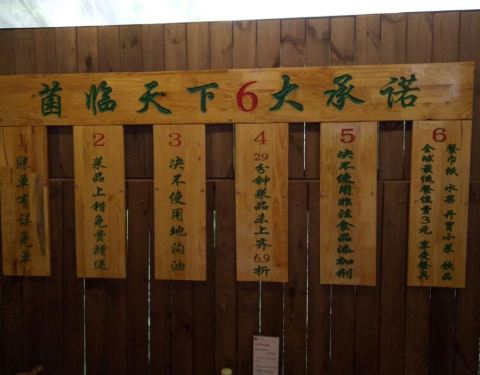 菌临天下6大承诺
1
账单有误免单
2
菜品上错免费赠送
3
决不使用地沟油
4
29分钟菜品未上齐6.9折
5
决不使用非法食品添加剂
6
餐巾纸 水果 开胃小菜 饮品
全球最低餐位费3元 享受餐具